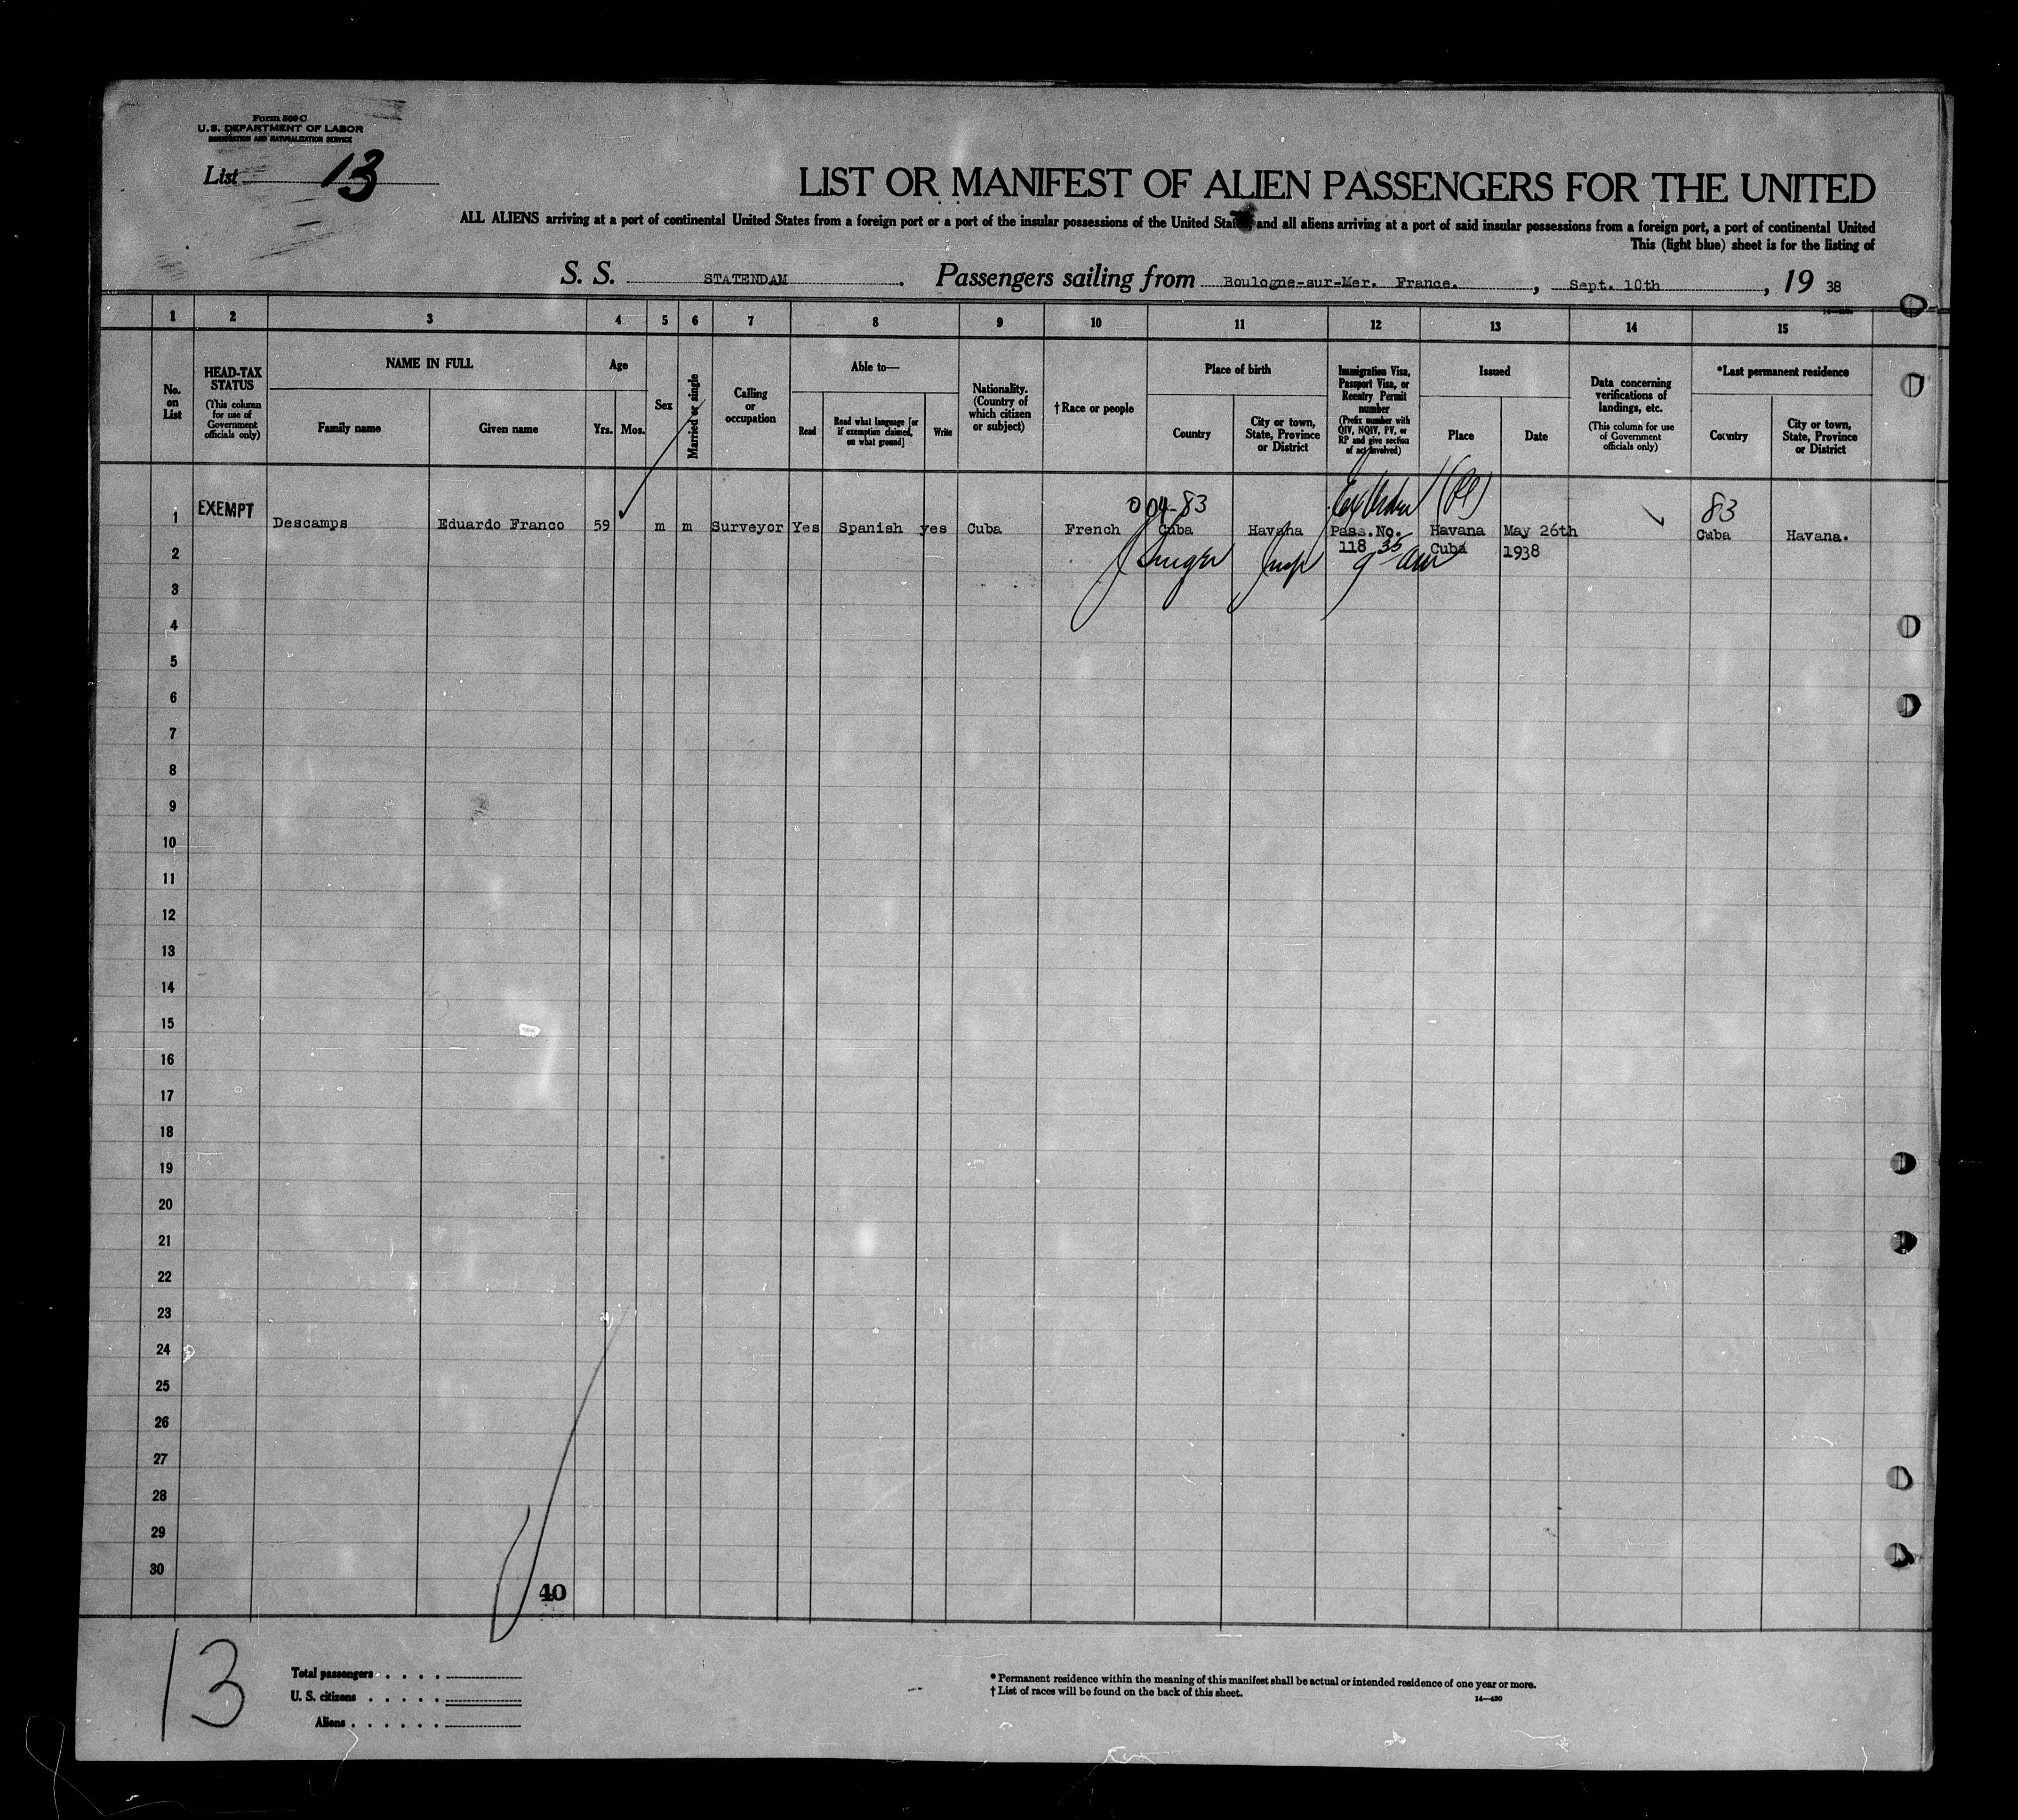 Form 500 C
U.S. DEPARTMENT OF LABOR
IMMIGRATION AND NATURALIZATION SERVICE
List 13
LIST OR MANIFEST OF ALIEN PASSENGERS FOR THE UNITED
ALL ALIENS arriving at a port of continental United States from a foreign port or a port of the insular possessions of the United States, and all aliens arriving at a port of said insular possessions from a foreign port, a port of continental United
This (light blue) sheet is for the listing of
S. S. STATENDAM. Passengers sailing from Boulogne-sur-Mer. France., Sept. 10th, 19 38
1 2 3 4 5 6 7 8 9 10 11 12 13 14 15
No. on List
HEAD-TAX STATUS (This column for use of Government officials only)
NAME IN FULL
Family name
Given name
Age
Yrs. Mos.
Sex
Married or single
Calling or occupation
Able to—
Read
Read what language [or if exemption claimed, on what ground]
Write
Nationality. (Country of which citizen or subject)
†Race or people
Place of birth
Country
City or town, State, Province or District
Immigration Visa, Passport Visa, or Reentry Permit number (Prefix number with QIV, NQIV, PV, or RP and give section of act involved)
Issued
Place
Date
Data concerning verifications of landings, etc. (This column for use of Government officials only)
*Last permanent residence
Country
City or town, State, Province or District
004-83 83
1 EXEMPT Descamps Eduardo Franco 59 m m Surveyor Yes Spanish yes Cuba French Cuba Havana Pass. No. Havana May 26th Cuba Havana.
2 118 35 Cuba 1938
3
4
5
6
7
8
9
10
11
12
13
14
15
16
17
18
19
20
21
22
23
24
25
26
27
28
29
30
40
13
Total passengers . . . .
U. S. citizens . . . . .
Aliens . . . . . .
* Permanent residence within the meaning of this manifest shall be actual or intended residence of one year or more.
† List of races will be found on the back of this sheet.
14—430